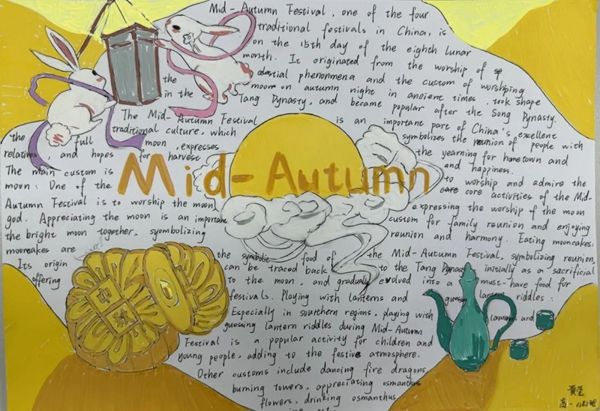 Mid-Autumn Festival, one of the four
traditional festivals in China, is
on the 15th day of the eighth lunar
month. It originated from the worship of
the celestial phenomena and the custom of worshiping
in the moon on autumn night in ancient times, took shape
Tang Dynasty, and became popular after the Song Dynasty.
The Mid-Autumn Festival is an important part of China's excellent
traditional culture, which symbolizes the reunion of people with
the full moon, expresses the yearning for hometown and
relatives and hopes for harvest and happiness.
The main custom is to worship and admire the
moon. One of the core activities of the Mid-
Autumn Festival is to worship the moon, expressing the worship of the moon
god. Appreciating the moon is an important custom for family reunion and enjoying
the bright moon together, symbolizing reunion and harmony. Eating mooncakes:
mooncakes are the symbolic food of the Mid-Autumn Festival, symbolizing reunion,
Its origin can be traced back to the Tang Dynasty initially as a sacrificial
offering to the moon and gradually evolved into a must-have food for
festivals. Playing with lanterns and guessing lantern riddles:
Especially in southern regions, playing with lanterns and
guessing lantern riddles during Mid-Autumn
Festival is a popular activity for children and
young people, adding to the festive atmosphere.
Other customs include dancing fire dragons,
burning towers, appreciating osmanthus
flowers, drinking osmanthus
Mid-Autumn